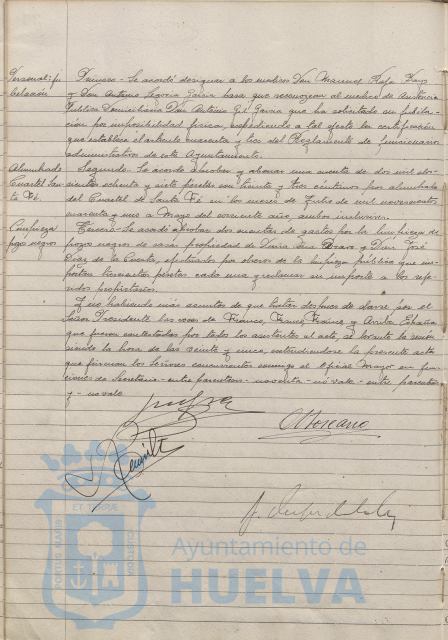 Personal: ju
bilación
Primero - Se acordó designar a los médicos Don Manuel Rofa
y Don Antonio Segovia García para que reconozcan al médico de Asistencia
Pública Domiciliaria Don Antonio Gil García que ha solicitado su jubila-
ción por imposibilidad física, expidiendo a tal efecto la certificación
que establece el artículo cuarenta y tres del Reglamento de funcionarios
administrativos de este Ayuntamiento.
Alumbrado
Cuartel San-
ta Fé.
Segundo. Se acordó aprobar y abonar una cuenta de dos mil
cientas ochenta y siete pesetas con treinta y tres céntimos por alumbrado
del Cuartel de Santa Fé en los meses de Julio de mil novecientos
cuarenta y uno a Mayo del corriente año, ambos inclusives.
Limpieza
pozos negros
Tercero - Se acordó aprobar dos cuentas de gastos por la limpieza de
pozos negros de casas propiedad de Doña Ana Bravo y Don José
Díaz de la Cuesta, efectuados por obreros de la limpieza pública que im-
portan trescientas pesetas cada una y reclamar su importe a los refe-
ridos propietarios.
Y no habiendo más asuntos de que tratar después de darse por el
Señor Presidente las voces de Franco, Franco, Franco y Arriba España
que fueron contestadas por todos los asistentes al acto, se levantó la sesión
siendo la hora de las veinte y cinco, extendiéndose la presente acta
que firman los Señores concurrentes conmigo el Oficial Mayor en fun-
ciones de Secretario - entre paréntesis - noventa - no vale - entre paréntesis
y - no vale
PORTUS MARIS
ET TERRAE
CUSTODIA
Ayuntamiento de
HUELVA